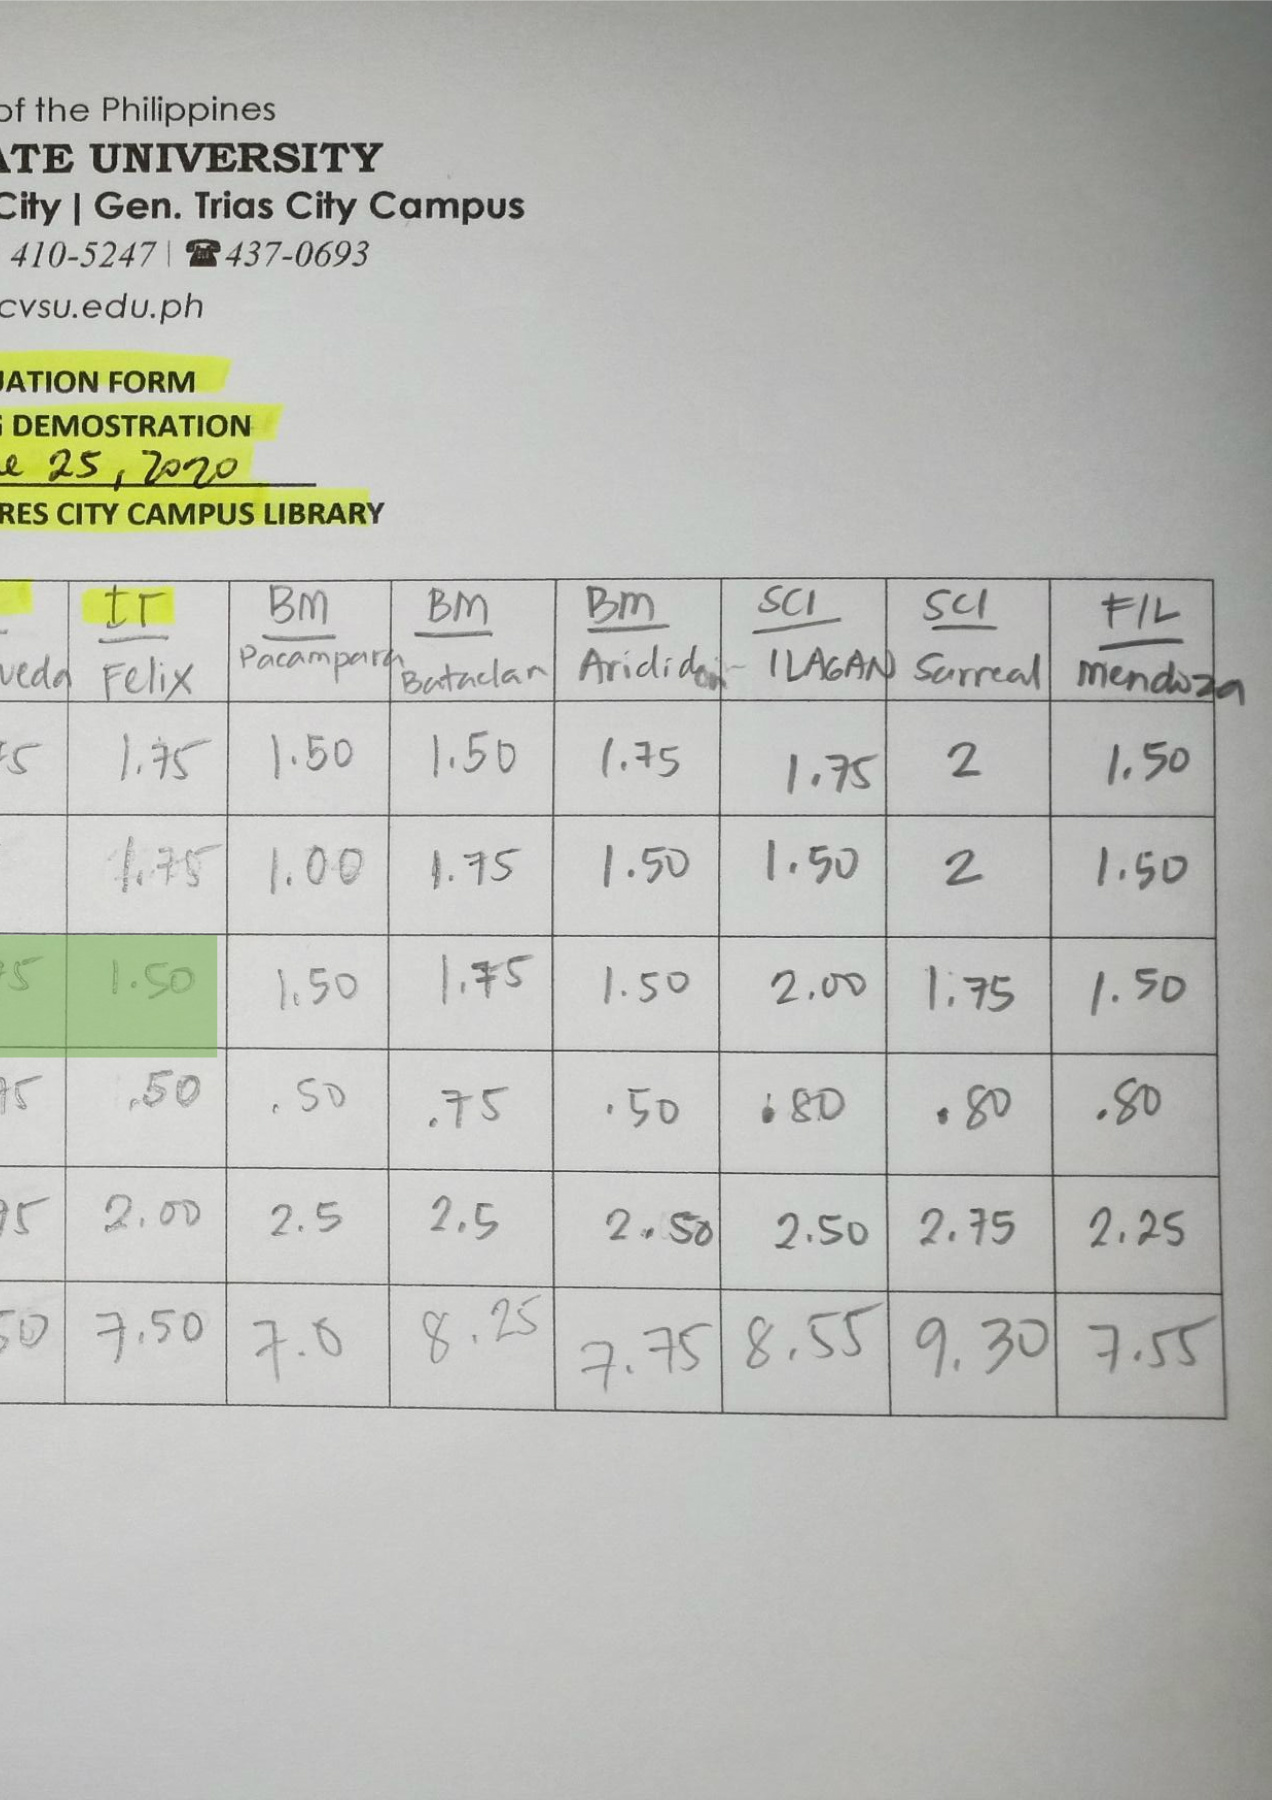 of the Philippines
ATE UNIVERSITY
City | Gen. Trias City Campus
410-5247 | ☎437-0693
cvsu.edu.ph
UATION FORM
G DEMOSTRATION
e 25, 2020
RES CITY CAMPUS LIBRARY
IT BM BM BM SCI SCI FIL
veda Felix Pacampara Bataclan ILAGAN Surreal Mendoza
75 1.75 1.50 1.50 1.75 1.75 2 1.50
1.75 1.00 1.75 1.50 1.50 2 1.50
75 1.50 1.50 1.75 1.50 2.00 1.75 1.50
75 .50 .50 .75 .50 .80 .80 .80
75 2.00 2.5 2.5 2.50 2.50 2.75 2.25
50 7.50 7.0 8.25 7.75 8.55 9.30 7.55